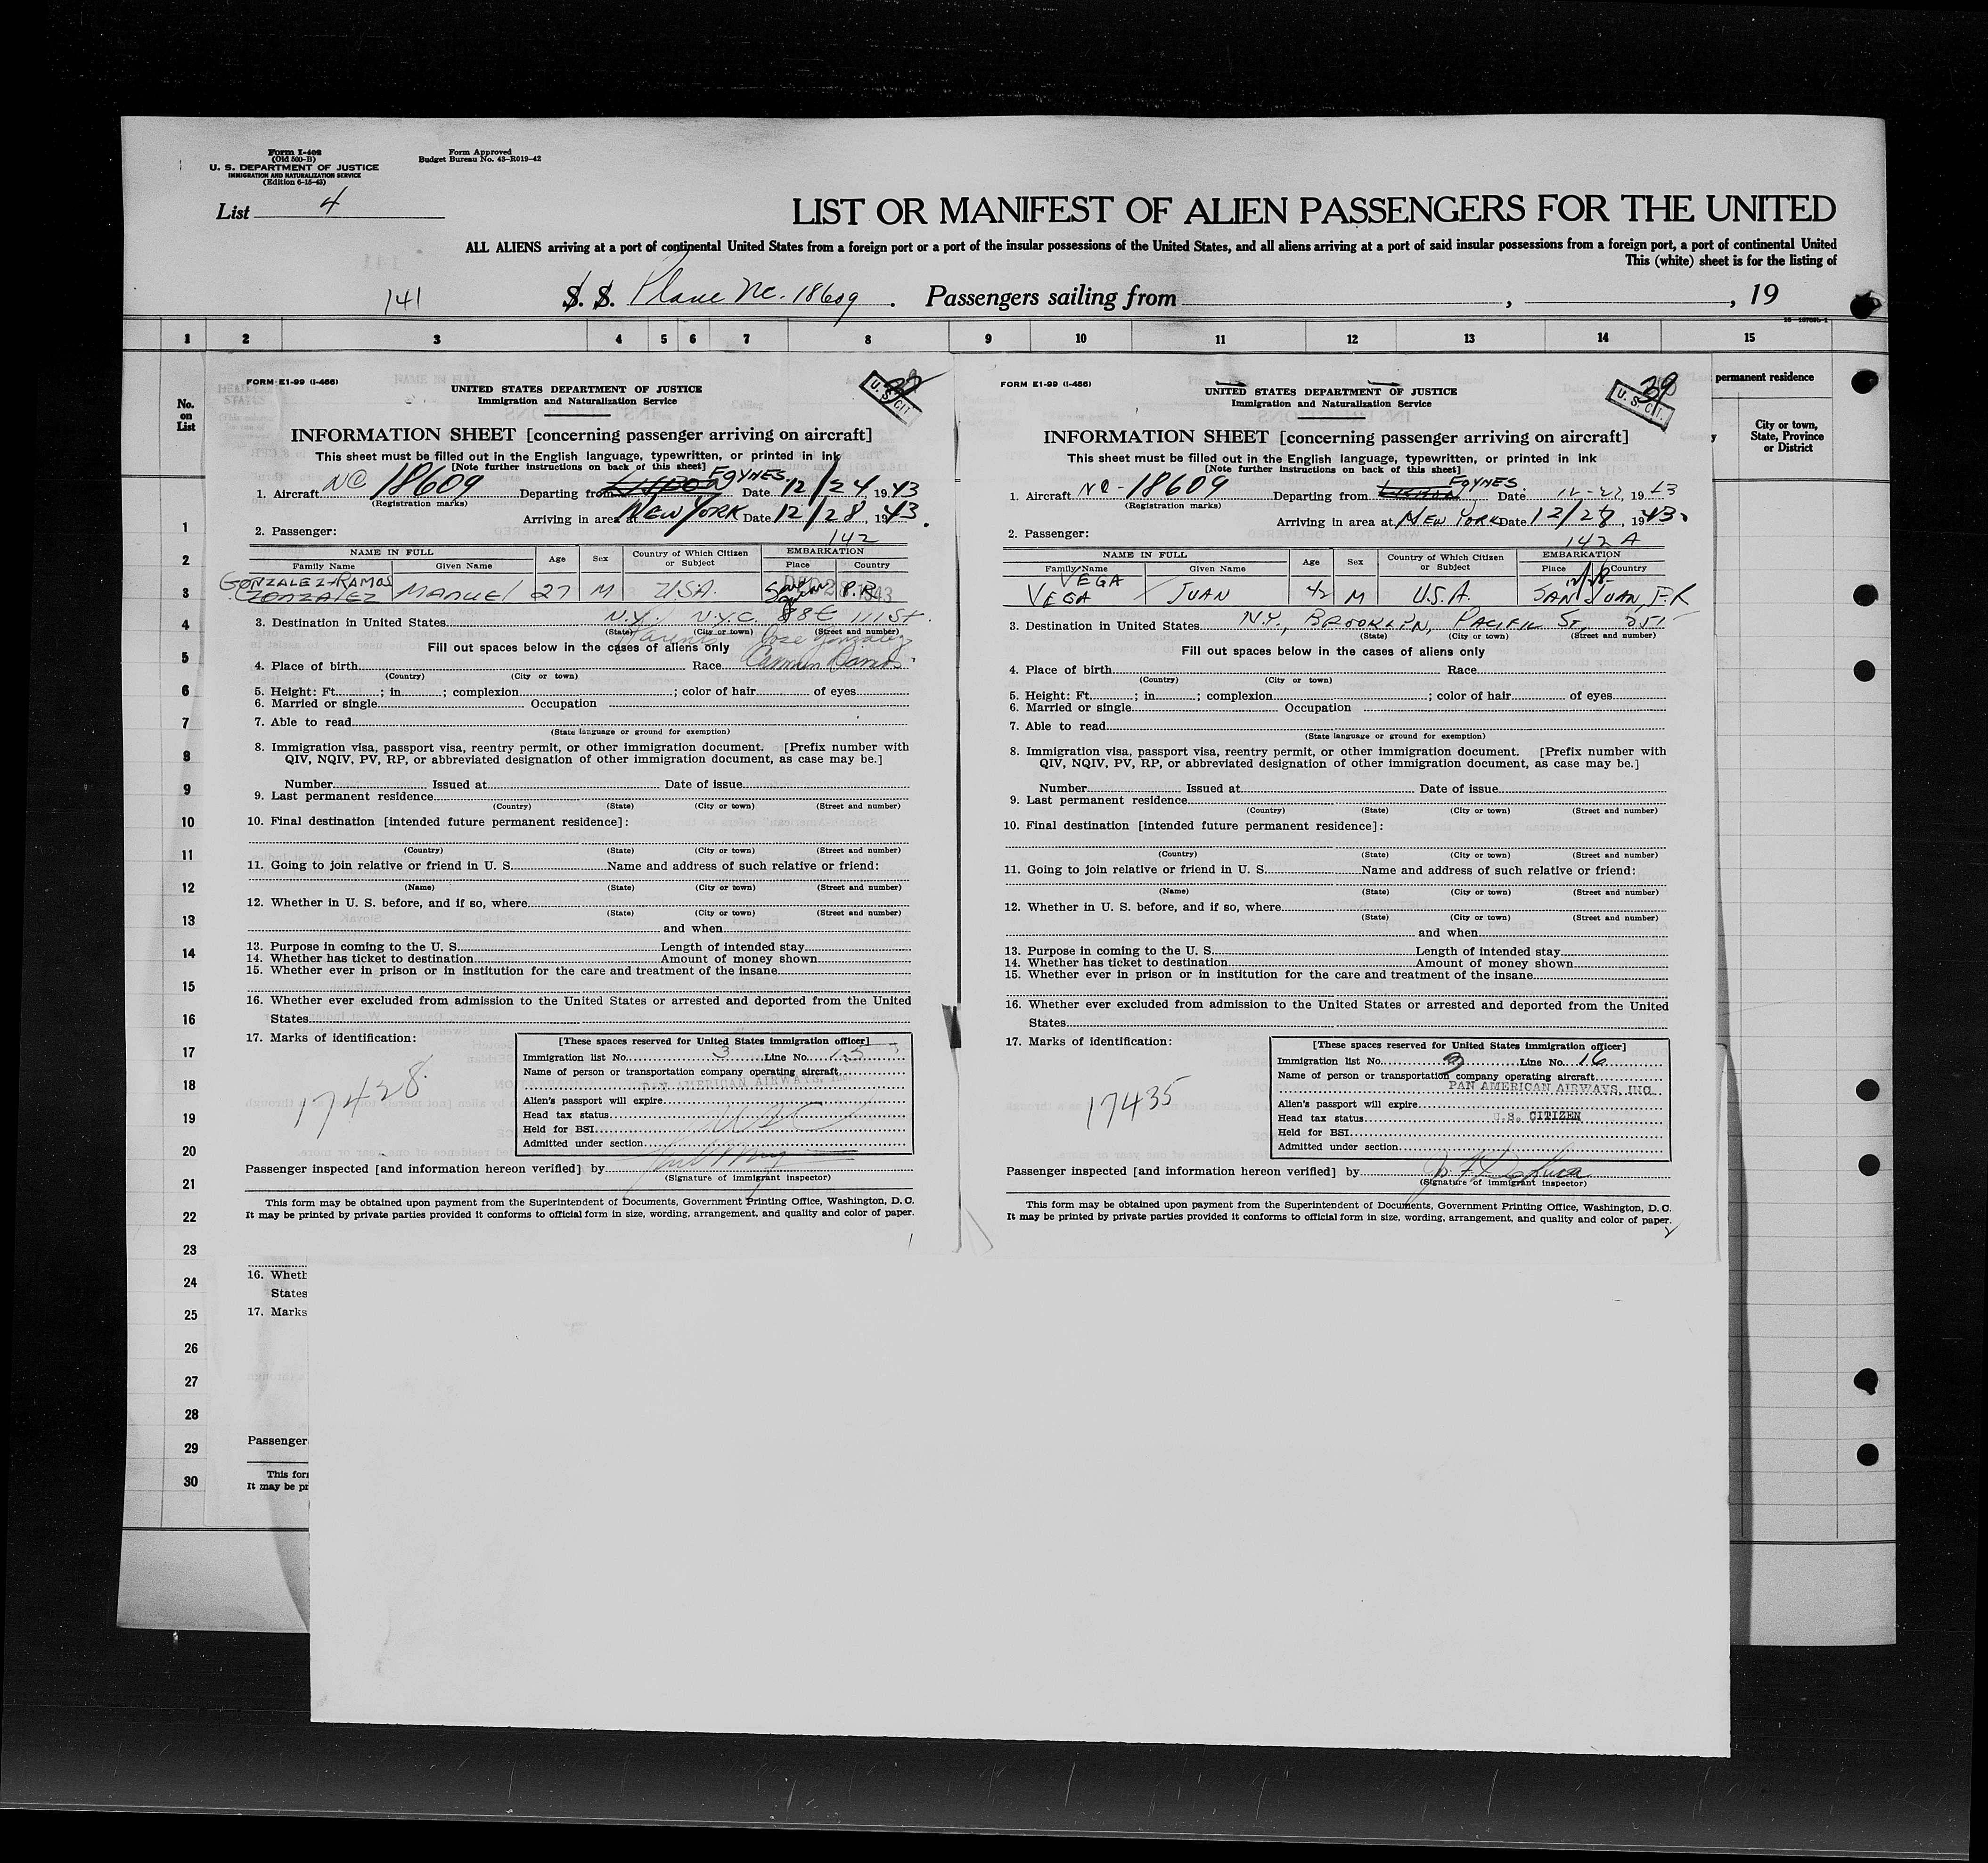 Form I-402
(Old 500-B)
U. S. DEPARTMENT OF JUSTICE
IMMIGRATION AND NATURALIZATION SERVICE
(Edition 6-15-43)
Form Approved
Budget Bureau No. 43-R019-42
List 4
LIST OR MANIFEST OF ALIEN PASSENGERS FOR THE UNITED
ALL ALIENS arriving at a port of continental United States from a foreign port or a port of the insular possessions of the United States, and all aliens arriving at a port of said insular possessions from a foreign port, a port of continental United
This (white) sheet is for the listing of
141 S. S. Plane Nc. 18609. Passengers sailing from , , 19
1 2 3 4 5 6 7 8 9 10 11 12 13 14 15
No. on List
permanent residence
City or town, State, Province or District
1
2
3
4
5
6
7
8
9
10
11
12
13
14
15
16
17
18
19
20
21
22
23
24
25
26
27
28
29
30
FORM E1-99 (I-466)
UNITED STATES DEPARTMENT OF JUSTICE
Immigration and Naturalization Service
U. S. CIT.
INFORMATION SHEET [concerning passenger arriving on aircraft]
This sheet must be filled out in the English language, typewritten, or printed in ink
[Note further instructions on back of this sheet]
1. Aircraft NC 18609 Departing from LISBON FOYNES Date 12/24 1943
(Registration marks)
Arriving in area at NEW YORK Date 12/28, 1943.
2. Passenger: 142
NAME IN FULL Age Sex Country of Which Citizen or Subject EMBARKATION
Family Name Given Name Place Country
GONZALEZ-RAMOS
GONZALEZ MANUEL 27 M U.S.A. San Juan P.R.
DEC 28 1943
3. Destination in United States N.Y. N.Y.C. 88 E 111 St.
(State) (City or town) (Street and number)
Parents Jose Gonzalez
Fill out spaces below in the cases of aliens only
4. Place of birth Race Carmen Ramos
(Country) (City or town)
5. Height: Ft. ; in. ; complexion ; color of hair of eyes
6. Married or single Occupation
7. Able to read
(State language or ground for exemption)
8. Immigration visa, passport visa, reentry permit, or other immigration document. [Prefix number with
QIV, NQIV, PV, RP, or abbreviated designation of other immigration document, as case may be.]
Number Issued at Date of issue
9. Last permanent residence
(Country) (State) (City or town) (Street and number)
10. Final destination [intended future permanent residence]:
(Country) (State) (City or town) (Street and number)
11. Going to join relative or friend in U. S. Name and address of such relative or friend:
(Name) (State) (City or town) (Street and number)
12. Whether in U. S. before, and if so, where
(State) (City or town) (Street and number)
and when
13. Purpose in coming to the U. S. Length of intended stay
14. Whether has ticket to destination Amount of money shown
15. Whether ever in prison or in institution for the care and treatment of the insane
16. Whether ever excluded from admission to the United States or arrested and deported from the United
States
17. Marks of identification:
17428
[These spaces reserved for United States immigration officer]
Immigration list No. 3 Line No. 15
Name of person or transportation company operating aircraft
PAN AMERICAN AIRWAYS, INC
Alien's passport will expire
Head tax status USC
Held for BSI
Admitted under section
Passenger inspected [and information hereon verified] by
(Signature of immigrant inspector)
This form may be obtained upon payment from the Superintendent of Documents, Government Printing Office, Washington, D. C.
It may be printed by private parties provided it conforms to official form in size, wording, arrangement, and quality and color of paper.
1
FORM E1-99 (I-466)
UNITED STATES DEPARTMENT OF JUSTICE
Immigration and Naturalization Service
39
U. S. CIT.
INFORMATION SHEET [concerning passenger arriving on aircraft]
This sheet must be filled out in the English language, typewritten, or printed in ink
[Note further instructions on back of this sheet]
1. Aircraft NC-18609 Departing from LISBON FOYNES Date 12-27 1943
(Registration marks)
Arriving in area at NEW YORK Date 12/28, 1943.
2. Passenger: 142 A
NAME IN FULL Age Sex Country of Which Citizen or Subject EMBARKATION
Family Name Given Name Place Country
VEGA
VEGA JUAN 42 M U.S.A. SAN JUAN, P.R
12/28
3. Destination in United States N.Y., BROOKLYN, PACIFIC ST, 351
(State) (City or town) (Street and number)
Fill out spaces below in the cases of aliens only
4. Place of birth Race
(Country) (City or town)
5. Height: Ft. ; in. ; complexion ; color of hair of eyes
6. Married or single Occupation
7. Able to read
(State language or ground for exemption)
8. Immigration visa, passport visa, reentry permit, or other immigration document. [Prefix number with
QIV, NQIV, PV, RP, or abbreviated designation of other immigration document, as case may be.]
Number Issued at Date of issue
9. Last permanent residence
(Country) (State) (City or town) (Street and number)
10. Final destination [intended future permanent residence]:
(Country) (State) (City or town) (Street and number)
11. Going to join relative or friend in U. S. Name and address of such relative or friend:
(Name) (State) (City or town) (Street and number)
12. Whether in U. S. before, and if so, where
(State) (City or town) (Street and number)
and when
13. Purpose in coming to the U. S. Length of intended stay
14. Whether has ticket to destination Amount of money shown
15. Whether ever in prison or in institution for the care and treatment of the insane
16. Whether ever excluded from admission to the United States or arrested and deported from the United
States
17. Marks of identification:
17435
[These spaces reserved for United States immigration officer]
Immigration list No. 3 Line No. 16
Name of person or transportation company operating aircraft
PAN AMERICAN AIRWAYS, INC.
Alien's passport will expire
Head tax status U.S. CITIZEN
Held for BSI
Admitted under section
Passenger inspected [and information hereon verified] by
(Signature of immigrant inspector)
This form may be obtained upon payment from the Superintendent of Documents, Government Printing Office, Washington, D. C.
It may be printed by private parties provided it conforms to official form in size, wording, arrangement, and quality and color of paper.
16. Wheth
States
17. Marks
Passenger
This for
It may be pr